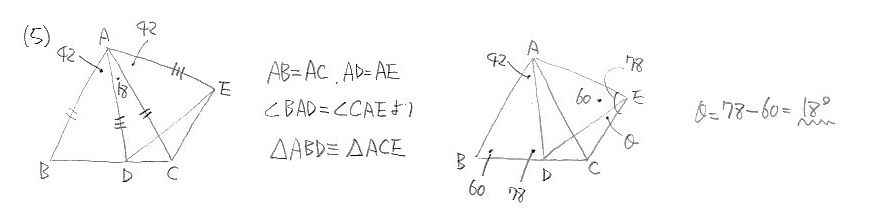 (5)
A
42
42
18
E
B
D
C
AB=AC, AD=AE
∠BAD=∠CAEより
△ABD≡△ACE
A
42
78
60
E
θ
B
D
C
60
78
θ=78-60=18°